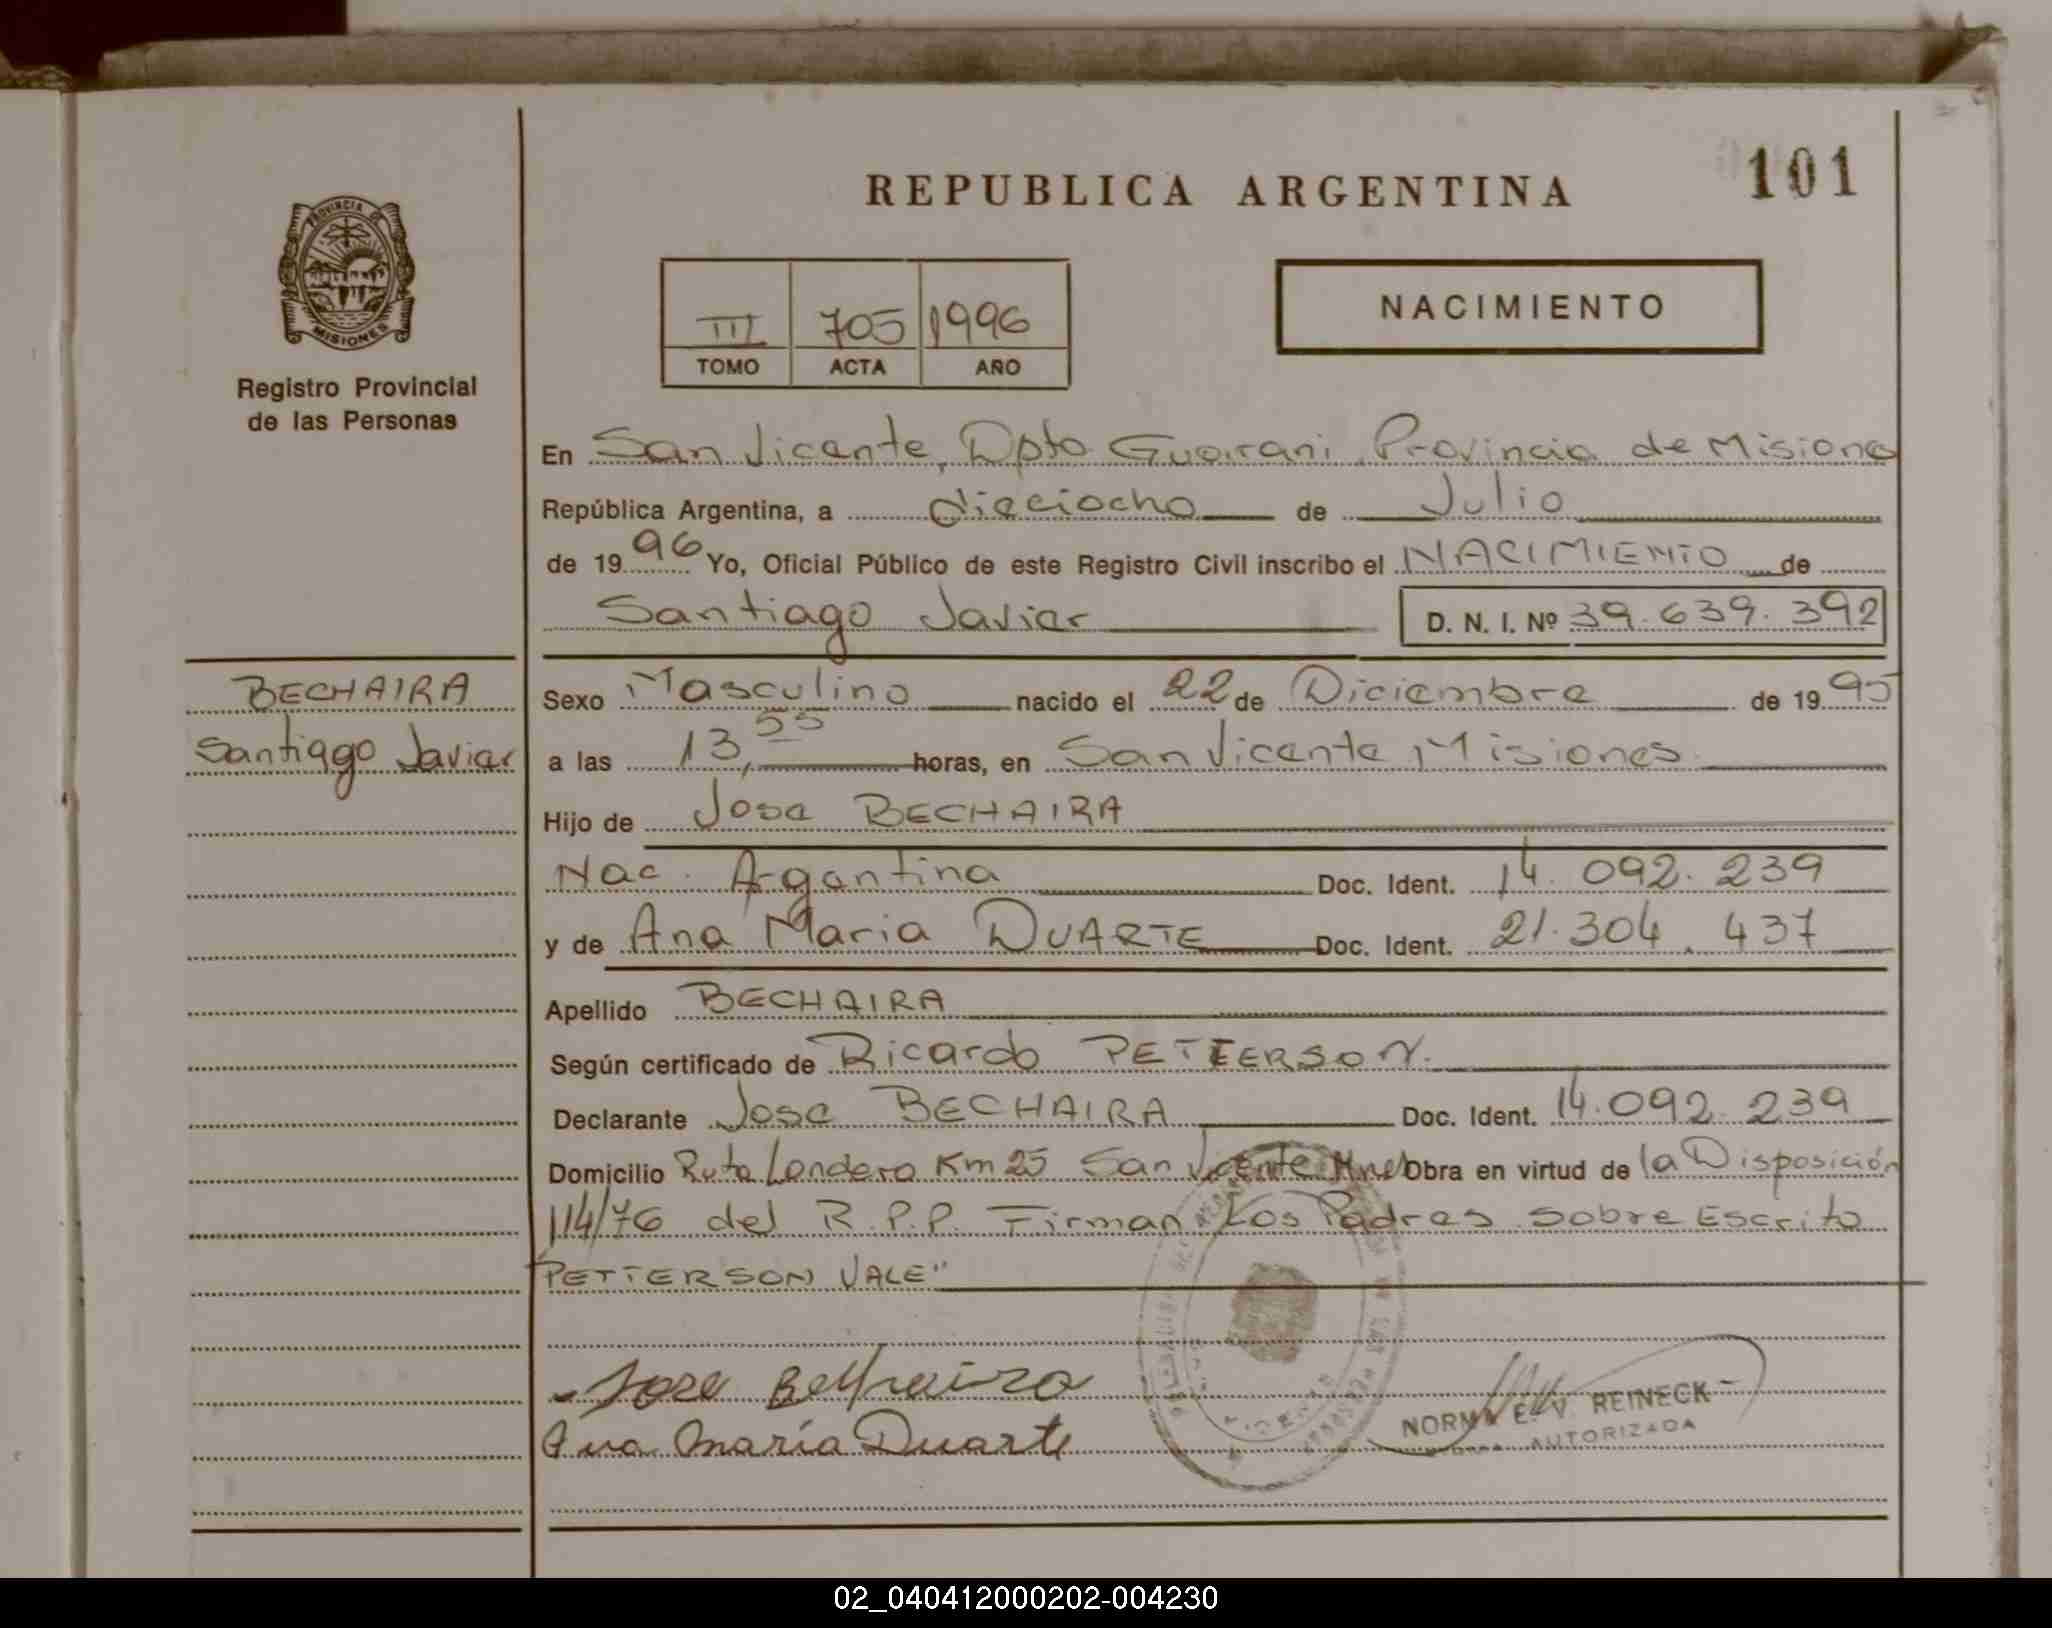 REPUBLICA ARGENTINA
101
PROVINCIA DE
MISIONES
Registro Provincial
de las Personas
III 705 1996
TOMO ACTA AÑO
NACIMIENTO
En San Vicente, Dpto Guarani Provincia de Misiones
República Argentina, a dieciocho de Julio
de 1996 Yo, Oficial Público de este Registro Civil inscribo el NACIMIENTO de
Santiago Javier D. N. I. Nº 39.639.392
BECHAIRA
Santiago Javier
Sexo Masculino nacido el 22 de Diciembre de 1995
a las 13,55 horas, en San Vicente Misiones
Hijo de Jose BECHAIRA
Nac. Argentina Doc. Ident. 14.092.239
y de Ana Maria DUARTE Doc. Ident. 21.304.437
Apellido BECHAIRA
Según certificado de Ricardo PETTERSON.
Declarante Jose BECHAIRA Doc. Ident. 14.092.239
Domicilio Ruta Londero Km 25 San Vicente Mnes Obra en virtud de la Disposición
114/76 del R.P.P. Firman Los Padres Sobre Escrito
"PETTERSON VALE"
Jose Bechaira
Ana María Duarte
NORMA E. V. REINECK
AUTORIZADA
02_040412000202-004230